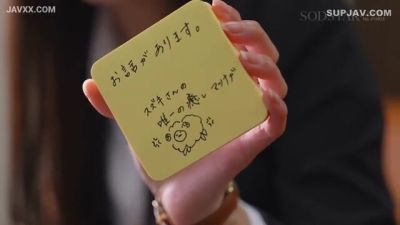 JAVXX.COM
SUPJAV.COM
SODSTAR
お話があります。
スズキさんの
唯一の癒し マッチが